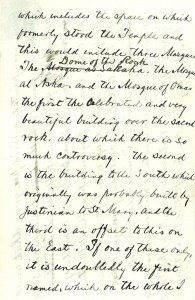 which includes the space on which
formerly stood the Temple and
this would include three Mosques
Dome of the Rock
The Mosque as Sakhara, the Mosque
al Aska, and the Mosque of Omar
the first the celebrated and very
beautiful building over the sacred
rock, about which there is so
much controversy. The second
is the building to the South which
originally was probably built by
Justinian to St Mary, and the
third is an offset to this on
the East. If one of these only,
it is undoubtedly the first
named, which on the whole I